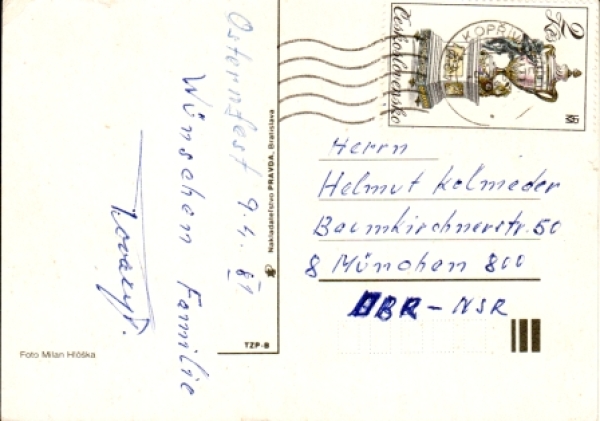 Osternfest 9.4.
Wünschen Familie
Nakladateľstvo PRAVDA, Bratislava
TZP-B
Foto Milan Hlôška
2 Kčs
Československo
KOPŘIV
Herrn
Helmut Kolmeder
Baumkirchnerstr. 50
8 München 800
BR - NSR